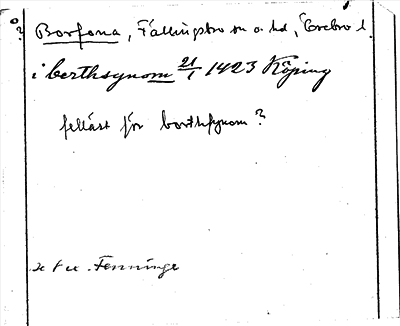 ? Borsona, Fällingsbro sn o. hd, Örebro l.
i berthsynom 21/1 1423 Köping
felläst för borthsynom?
Fenninge